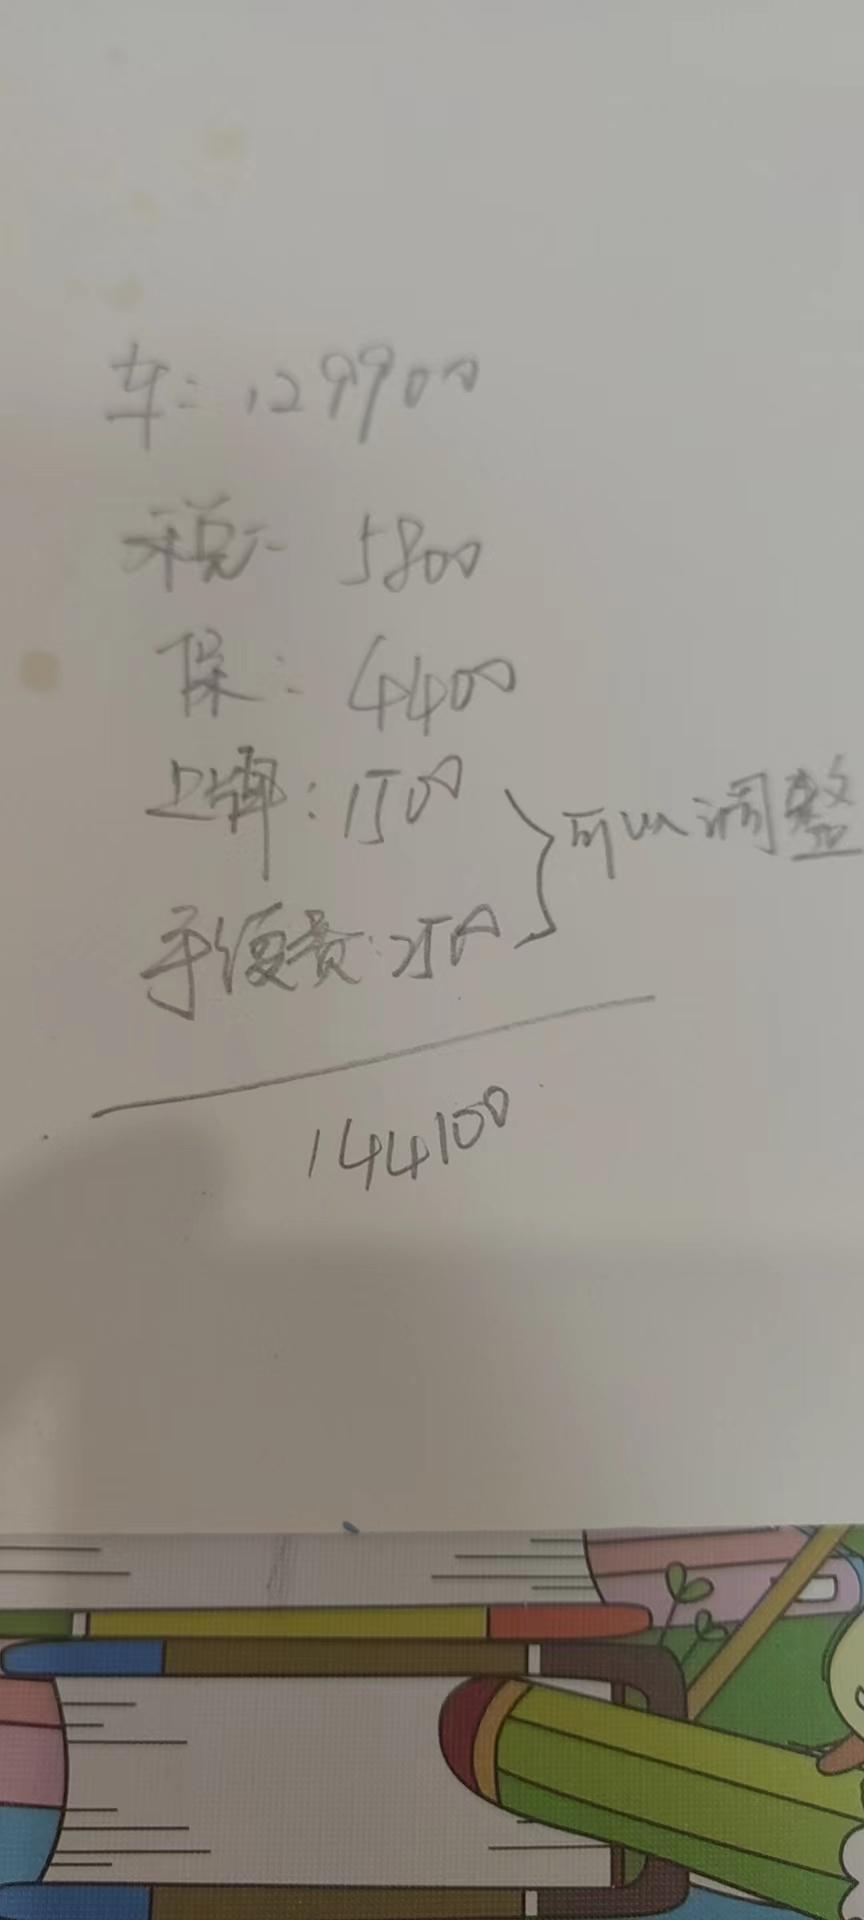 车: 129900
税: 5800
保: 4400
上牌: 1500
手续费: 2500
} 可以调整
144100